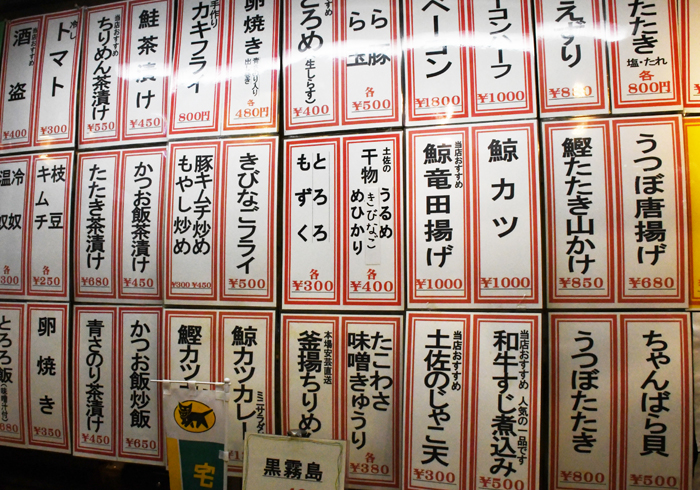 たたき
塩・たれ
各¥800
ーコンハーフ
¥1000
ベーコン
¥1800
ら豚
ら玉
各¥500
とろめ
(生しらす)
¥400
卵焼き
各480円
手作り
カキフライ
800円
鮭茶漬け
¥450
当店おすすめ
ちりめん茶漬け
¥550
冷し
トマト
¥300
当店おすすめ
酒盗
¥400
うつぼ唐揚げ
¥680
鰹たたき山かけ
¥850
鯨カツ
¥1000
当店おすすめ
鯨竜田揚げ
¥1000
土佐の
干物
うるめ
きびなご
めひかり
各¥400
とろろ
もずく
各¥300
きびなごフライ
¥500
豚キムチ炒め
もやし炒め
¥300 ¥450
かつお飯茶漬け
¥450
たたき茶漬け
¥680
枝豆
キムチ
各¥250
冷奴
温奴
各300
ちゃんばら貝
¥500
うつぼたたき
¥800
当店おすすめ
人気の一品です
和牛すじ煮込み
¥500
当店おすすめ
土佐のじゃこ天
¥400
たこわさ
味噌きゅうり
各¥380
本場安芸直送
釜揚ちりめ
ミニサラダ
鯨カツカレー
鰹カツ
かつお飯炒飯
¥650
青さのり茶漬け
¥450
卵焼き
¥350
とろろ飯
(味噌汁付)
宅
黒霧島